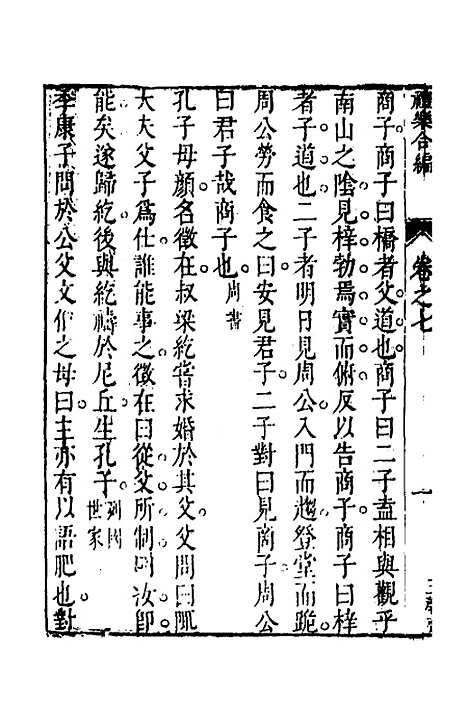 禮樂合編
卷之七
一
商子商子曰橋者父道也商子曰二子盍相與觀乎
南山之陰見梓勃焉實而俯反以告商子商子曰梓
者子道也二子者明日見周公入門而趨登堂而跪
周公勞而食之曰安見君子二子對曰見商子周公
曰君子哉商子也周書
孔子母顏名徵在叔梁紇嘗求婚於其父父問曰陬
大夫父子為仕誰能事之徵在曰從父所制曰汝即
能矣遂歸紇後與紇禱於尼丘生孔子列國世家
季康子問於公父文伯之母曰主亦有以語肥也對